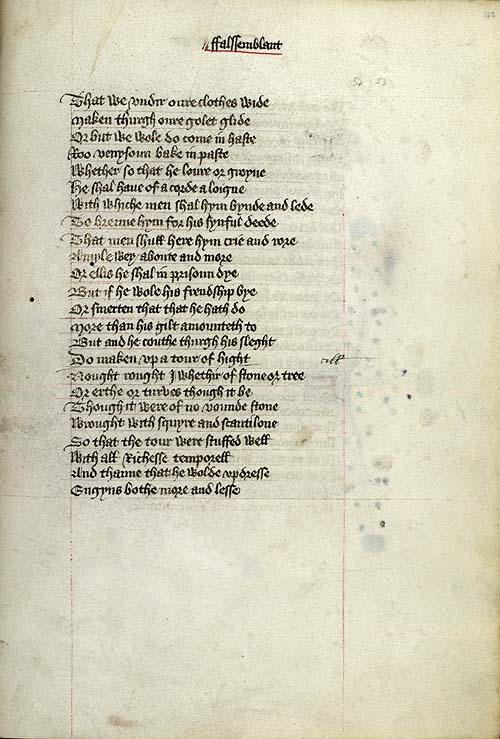 162
ffalssemblant
That we vndir oure clothes wide
Maken thurgh oure golet glide
Or but we wole do come in haste
Roo venysoun bake in paste
Whether so that he loure or groyne
He shal haue of a corde a loigne
With whiche men shal hym bynde and lede
To brenne hym for his synful deede
That men shull here hym crie and rore
A myle wey aboute and more
Or ellis he shal in prisoun dye
But if he wole his frendship bye
Or smerten that that he hath do
More than his gilt amounteth to
But and he couthe thurgh his sleght
Do maken vp a tour of hight
Nought rought I whethir of stone or tree
Or erthe or turves though it be
Though it were of no vounde stone
Wrought with squyre and scantilone
So that the tour were stuffed well
With all Richesse temporell
And thanne that he wolde vpdresse
Engyns bothe more and lesse